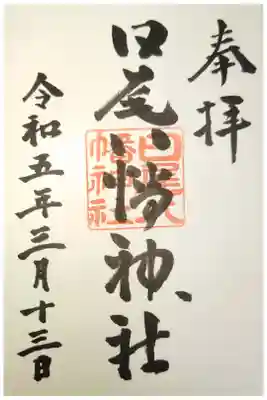 奉拝
日尾八幡神社
日尾八
幡神社
令和五年三月十三日